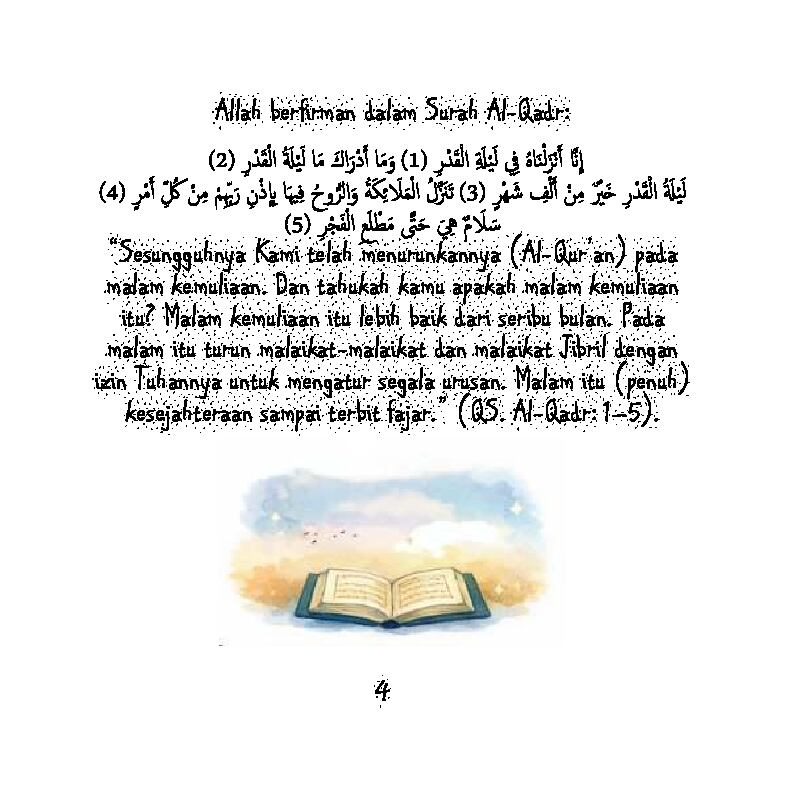 Allah berfirman dalam Surah Al-Qadr:
إِنَّا أَنْزَلْنَاهُ فِي لَيْلَةِ الْقَدْرِ (1) وَمَا أَدْرَاكَ مَا لَيْلَةُ الْقَدْرِ (2)
لَيْلَةُ الْقَدْرِ خَيْرٌ مِنْ أَلْفِ شَهْرٍ (3) تَنَزَّلُ الْمَلَائِكَةُ وَالرُّوحُ فِيهَا بِإِذْنِ رَبِّهِمْ مِنْ كُلِّ أَمْرٍ (4)
سَلَامٌ هِيَ حَتَّى مَطْلَعِ الْفَجْرِ (5)
"Sesungguhnya Kami telah menurunkannya (Al-Qur'an) pada
malam kemuliaan. Dan tahukah kamu apakah malam kemuliaan
itu? Malam kemuliaan itu lebih baik dari seribu bulan. Pada
malam itu turun malaikat-malaikat dan malaikat Jibril dengan
izin Tuhannya untuk mengatur segala urusan. Malam itu (penuh)
kesejahteraan sampai terbit fajar." (QS. Al-Qadr: 1–5).
4